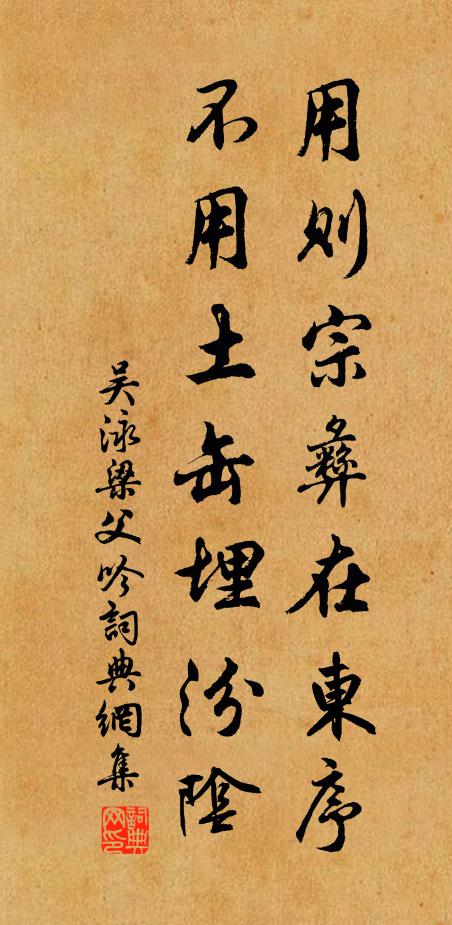 用则宗彝在東序
不用土缶埋汾陰
吴泳梁父吟詞典網集
詞典网印